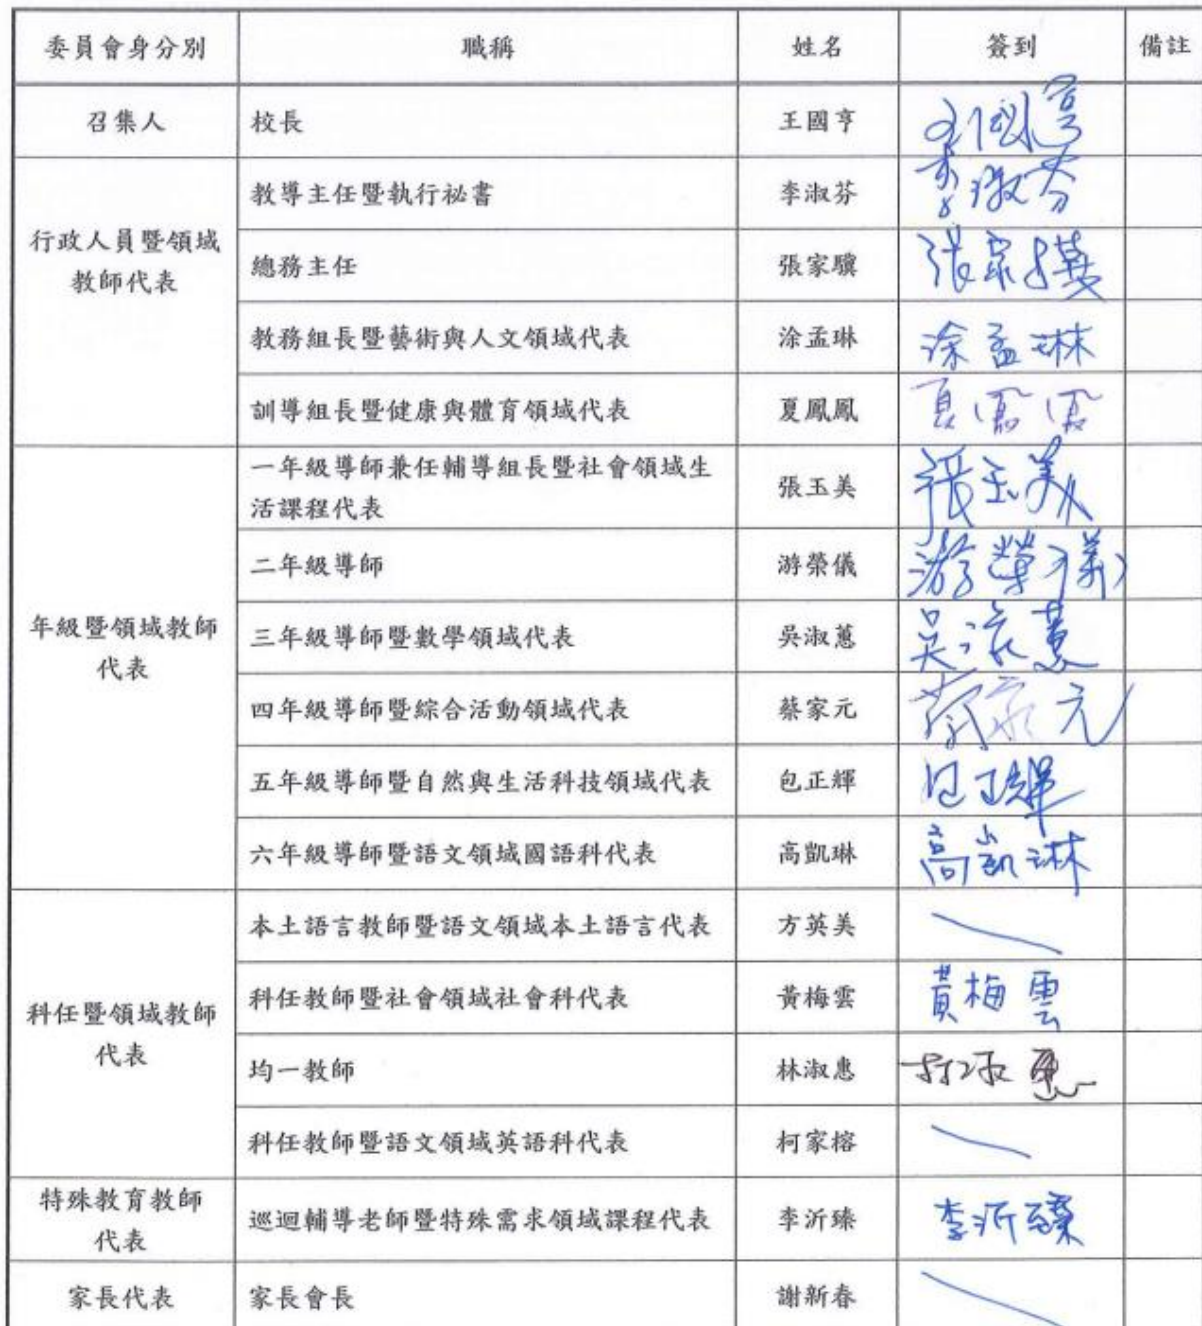 委員會身分別 職稱 姓名 簽到 備註
召集人 校長 王國亨 王國亨
行政人員暨領域
教師代表
教導主任暨執行祕書 李淑芬 李淑芬
總務主任 張家驥 張家驥
教務組長暨藝術與人文領域代表 涂孟琳 涂孟琳
訓導組長暨健康與體育領域代表 夏鳳鳳 夏鳳鳳
年級暨領域教師
代表
一年級導師兼任輔導組長暨社會領域生
活課程代表 張玉美 張玉美
二年級導師 游榮儀 游榮儀
三年級導師暨數學領域代表 吳淑蔥 吳淑蔥
四年級導師暨綜合活動領域代表 蔡家元 蔡家元
五年級導師暨自然與生活科技領域代表 包正輝 包正輝
六年級導師暨語文領域國語科代表 高凱琳 高凱琳
科任暨領域教師
代表
本土語言教師暨語文領域本土語言代表 方英美
科任教師暨社會領域社會科代表 黃梅雲 黃梅雲
均一教師 林淑惠 林淑惠
科任教師暨語文領域英語科代表 柯家榕
特殊教育教師
代表
巡迴輔導老師暨特殊需求領域課程代表 李沂臻 李沂臻
家長代表 家長會長 謝新春